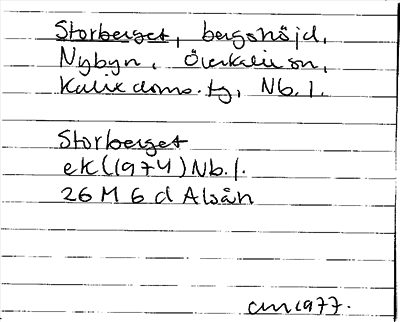 Storberget, bergshöjd,
Nybyn, Överkalix sn,
Kalix doms. tg, Nb. l.
Storberget
ek (1974) Nb. l.
26 M 6 d Alsån
cm 1977.